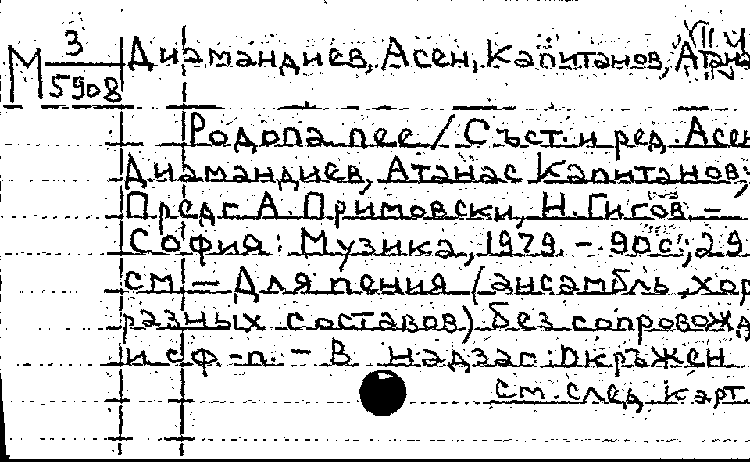 М 3/5908 Диамандиев, Асен, Капитанов, Атана
Родопа пее / Съст. и ред. Асен
Диамандиев, Атанас Капитанов;
Предг. А. Примовски, Н. Гигов. –
София: Музика, 1979. – 90 с.; 29
см – Для пения (ансамбль, хор
разных составов) без сопровожд
и с ф-п. – В надзаг: Окръжен
см. след. карт.